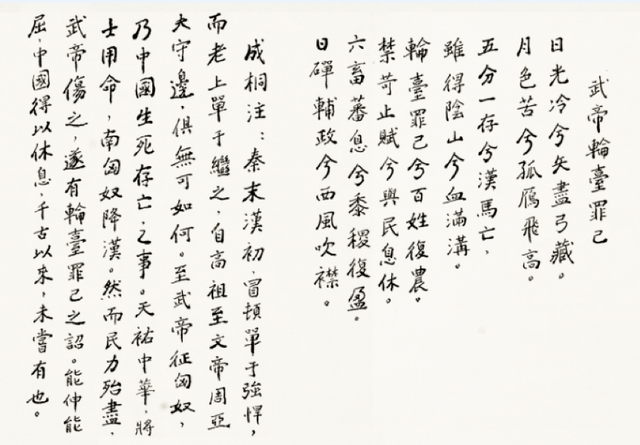 武帝輪臺罪己
日光冷兮矢盡弓藏。
月色苦兮孤雁飛高。
五分一存兮漢馬亡，
雖得陰山兮血滿溝。
輪臺罪己兮百姓復農。
禁苛止賦兮與民息休。
六畜蕃息兮黍稷復盈。
日磾輔政兮西風吹襟。
成桐注：秦末漢初，冒頓單于強悍，
而老上單于繼之，自高祖至文帝周亞
夫守邊，俱無可如何。至武帝征匈奴，
乃中國生死存亡之事。天祐中華，將
士用命，南匈奴降漢。然而民力殆盡，
武帝傷之，遂有輪臺罪己之詔。能伸能
屈，中國得以休息，千古以來，未嘗有也。